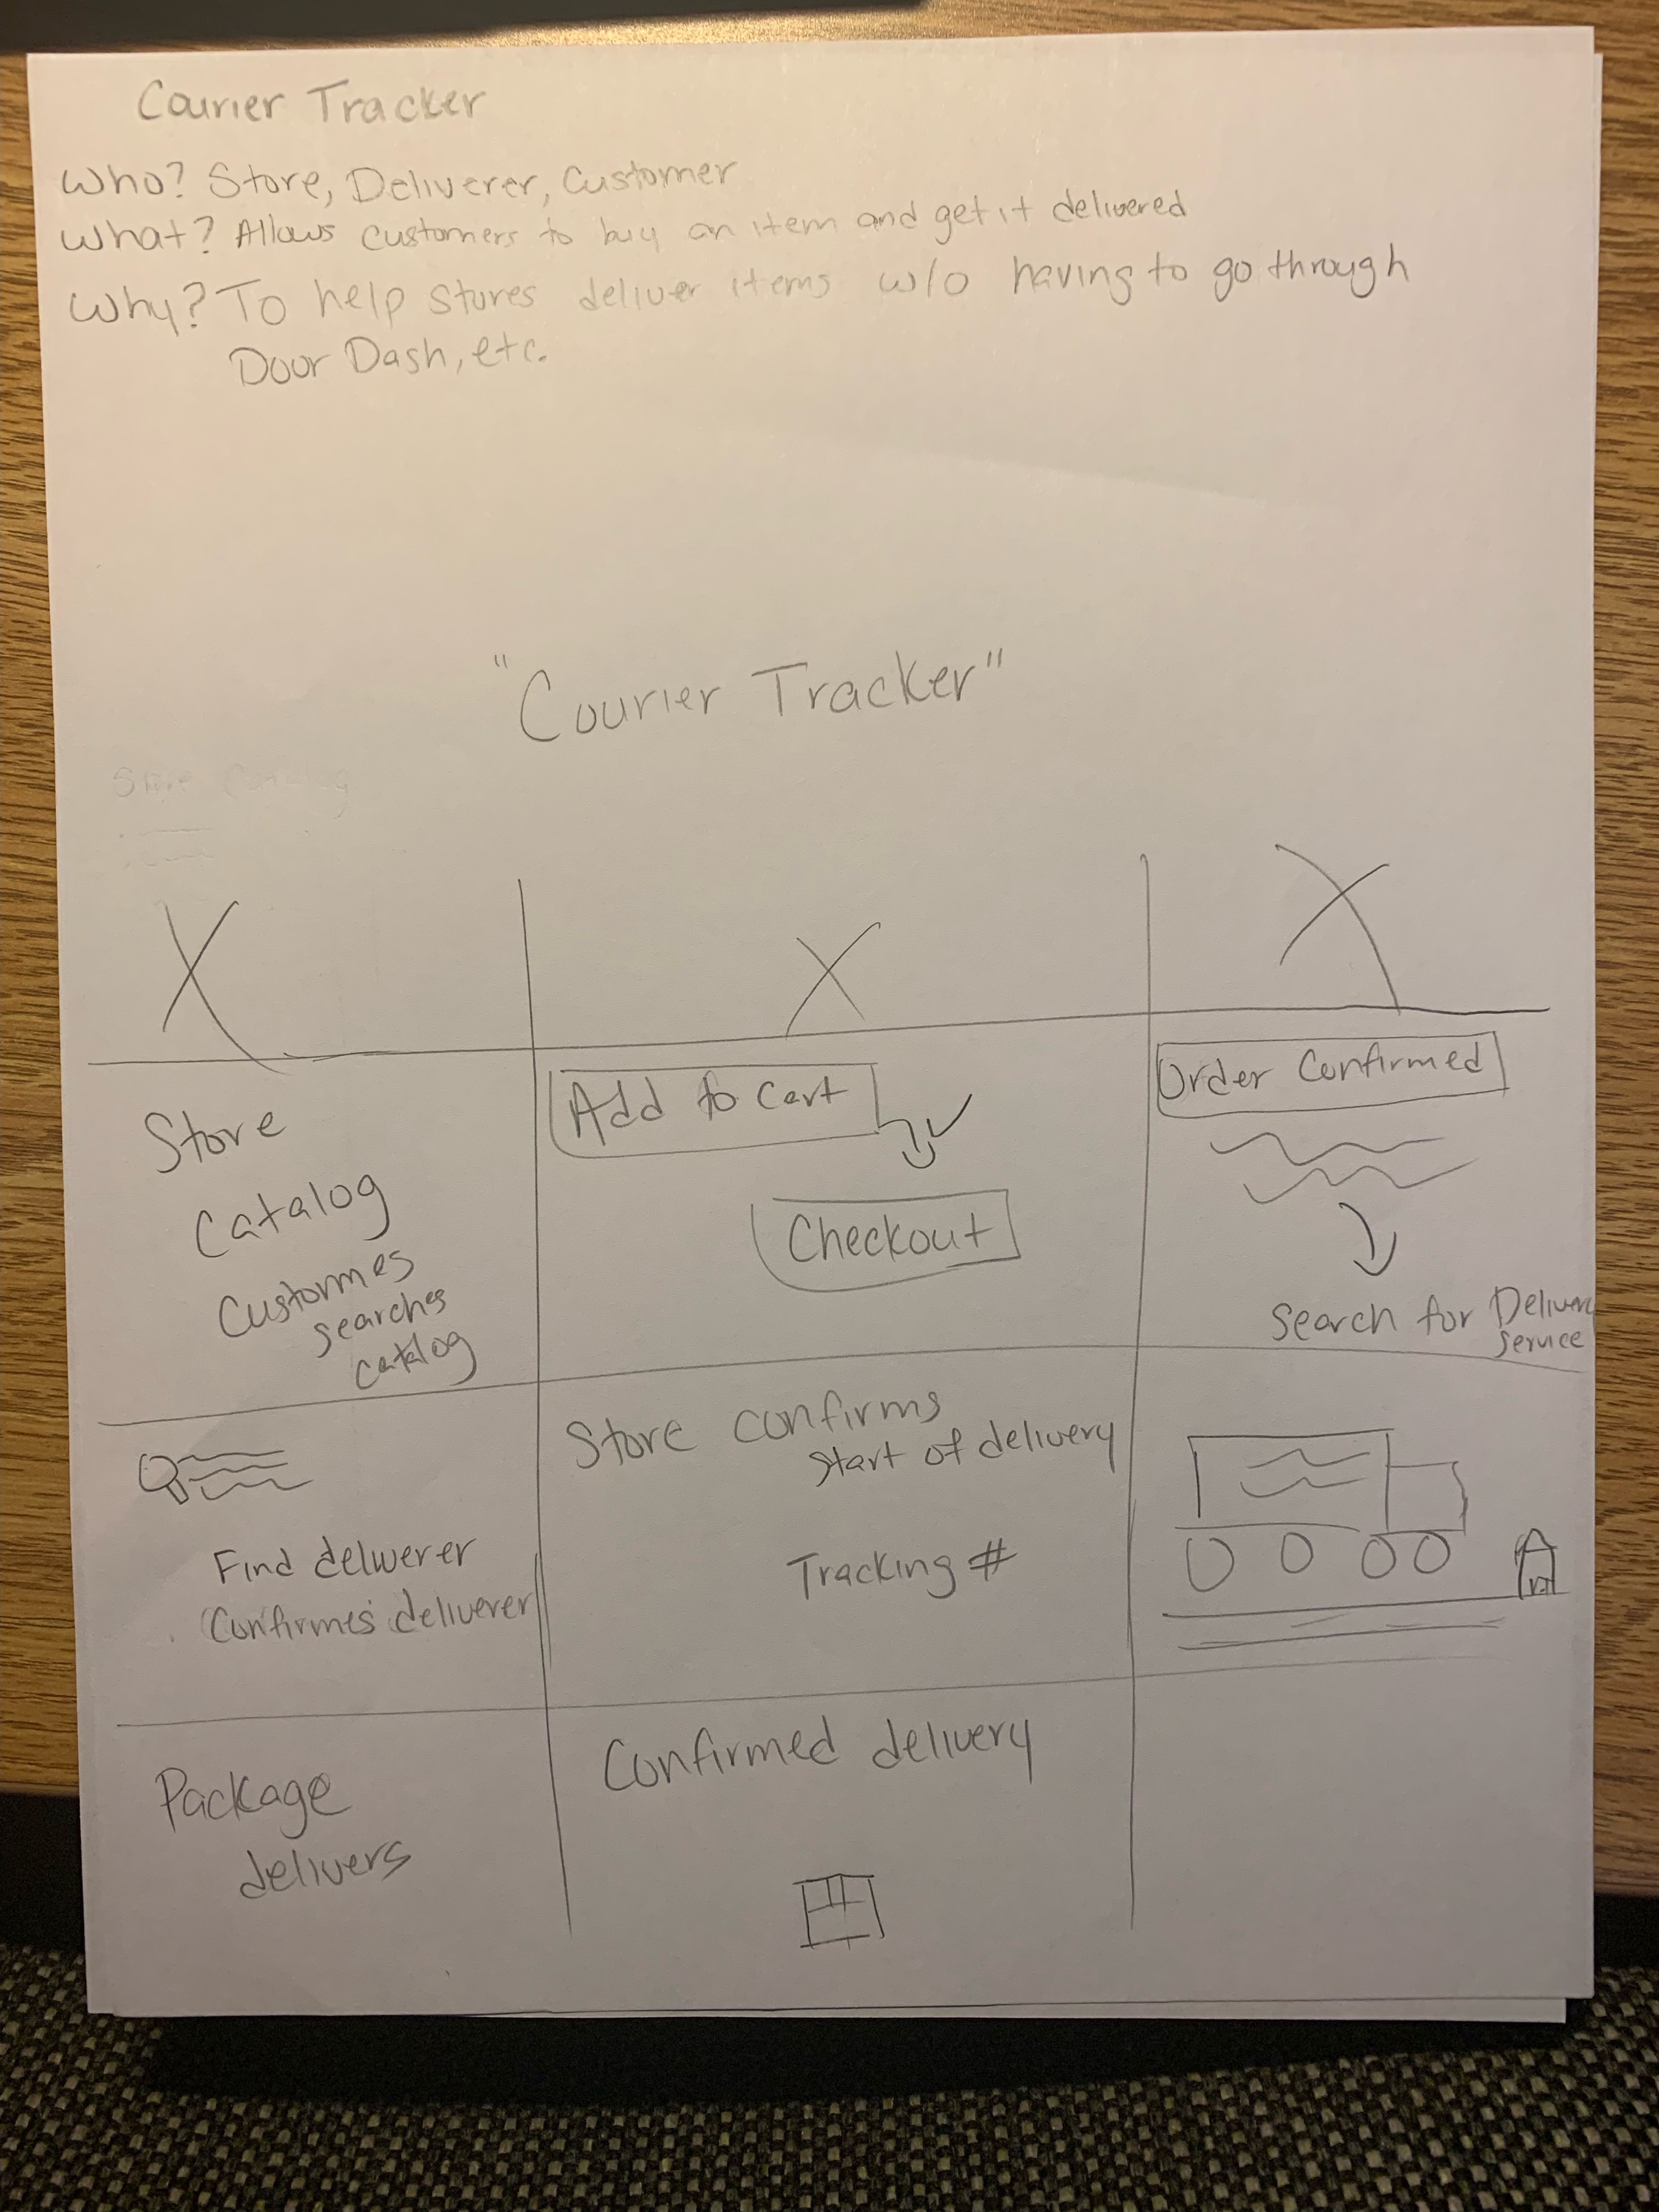 Courier Tracker
Who? Store, Deliverer, Customer
What? Allows customers to buy an item and get it delivered
Why? To help stores deliver items w/o having to go through
Door Dash, etc.
"Courier Tracker"
Store Catalog
X
X
X
Store
Catalog
Custormes
searches
catalog
Add to Cart
Checkout
Order Confirmed
Search for Delivere
Service
Find deliverer
Confirmes deliverer
Store confirms
start of delivery
Tracking #
Package
delivers
Confirmed delivery